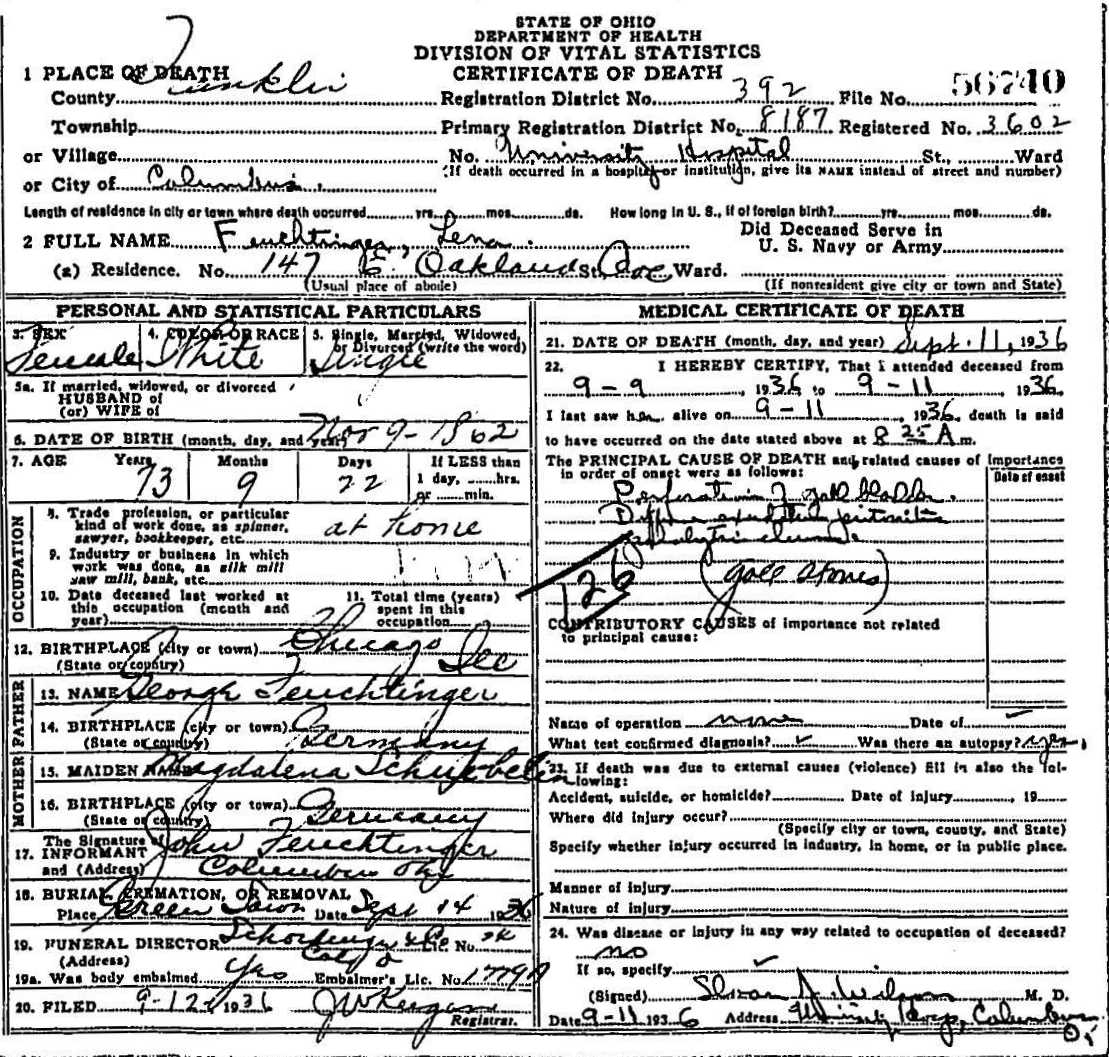 STATE OF OHIO
DEPARTMENT OF HEALTH
DIVISION OF VITAL STATISTICS
CERTIFICATE OF DEATH
1 PLACE OF DEATH
County Franklin Registration District No. 392 File No. 56740
Township Primary Registration District No. 8187 Registered No. 3602
or Village No. University Hospital St., Ward
or City of Columbus (If death occurred in a hospital or institution, give its NAME instead of street and number)
Length of residence in city or town where death occurred yrs. mos. ds. How long in U. S., if of foreign birth? yrs. mos. ds.
2 FULL NAME Feuchtinger, Lena Did Deceased Serve in U. S. Navy or Army
(a) Residence. No. 147 E. Oakland St. Ave Ward.
(Usual place of abode) (If nonresident give city or town and State)
PERSONAL AND STATISTICAL PARTICULARS
3. SEX Female
4. COLOR OR RACE White
5. Single, Married, Widowed, or Divorced (write the word) Single
5a. If married, widowed, or divorced
HUSBAND of
(or) WIFE of
6. DATE OF BIRTH (month, day, and year) Nov 9-1862
7. AGE Years 73 Months 9 Days 22 If LESS than 1 day, hrs. or min.
OCCUPATION
8. Trade, profession, or particular kind of work done, as spinner, sawyer, bookkeeper, etc. at home
9. Industry or business in which work was done, as silk mill saw mill, bank, etc.
10. Date deceased last worked at this occupation (month and year)
11. Total time (years) spent in this occupation
12. BIRTHPLACE (city or town) Chicago
(State or country) Ill
FATHER
13. NAME George Feuchtinger
14. BIRTHPLACE (city or town) Germany
(State or country)
MOTHER
15. MAIDEN NAME Magdalena
16. BIRTHPLACE (city or town) Germany
(State or country)
17. The Signature of INFORMANT John Feuchtinger
and (Address) Columbus
18. BURIAL, CREMATION, OR REMOVAL
Place Green Lawn Date Sept 14 1936
19. FUNERAL DIRECTOR Lic. No.
(Address)
19a. Was body embalmed Yes Embalmer's Lic. No. 1779A
20. FILED 9-12 1936
Registrar.
MEDICAL CERTIFICATE OF DEATH
21. DATE OF DEATH (month, day, and year) Sept. 11, 1936
22. I HEREBY CERTIFY, That I attended deceased from
9-9, 1936 to 9-11, 1936.
I last saw her alive on 9-11, 1936, death is said
to have occurred on the date stated above at 8 25 A m.
The PRINCIPAL CAUSE OF DEATH and related causes of importance
in order of onset were as follows: Date of onset
Perforation of gall bladder.
Diffuse peritonitis
(gall stones)
126
CONTRIBUTORY CAUSES of importance not related
to principal cause:
Name of operation none Date of ✓
What test confirmed diagnosis? ✓ Was there an autopsy? yes,
23. If death was due to external causes (violence) fill in also the following:
Accident, suicide, or homicide? Date of injury, 19
Where did injury occur?
(Specify city or town, county, and State)
Specify whether injury occurred in industry, in home, or in public place.
Manner of injury
Nature of injury
24. Was disease or injury in any way related to occupation of deceased?
no
If so, specify ✓
(Signed) Wilson M. D.
Date 9-11 1936 Address Hosp, Columbus